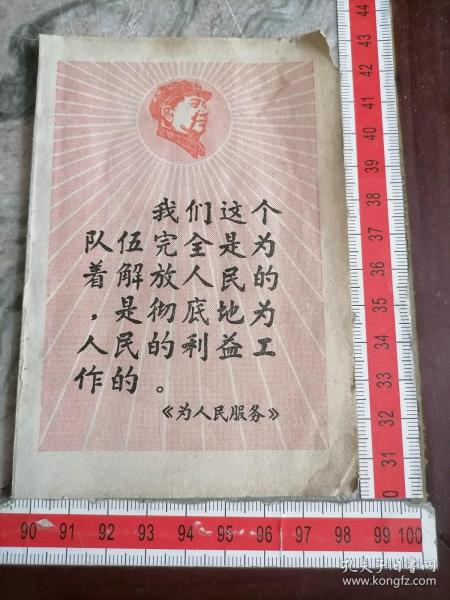 我们这个
队伍完全是为
着解放人民的
，是彻底地为
人民的利益工
作的。
《为人民服务》
44
43
42
41
40
39
38
37
36
35
34
33
32
31
0
90 91 92 93 94 95 96 97 98 99 100
孔夫子旧书网
www.kongfz.com